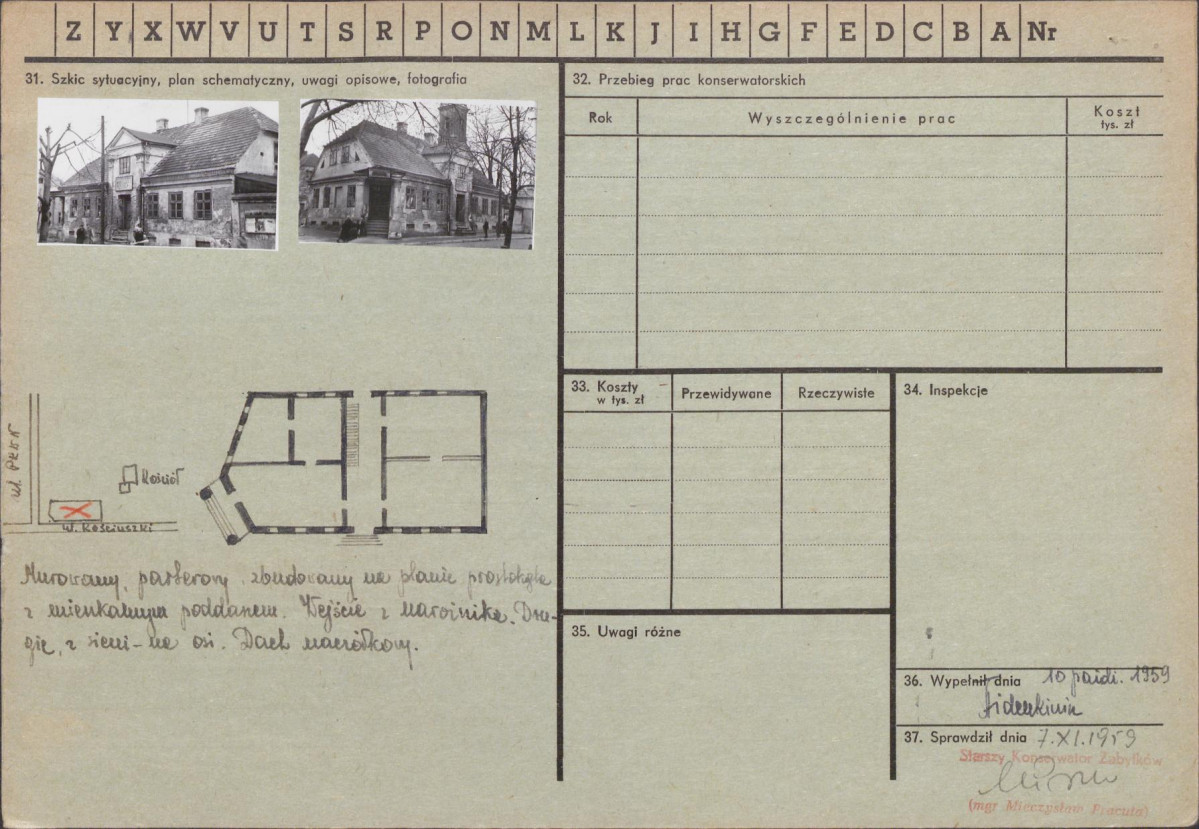 Z Y X W V U T S R P O N M L K J I H G F E D C B A Nr
31. Szkic sytuacyjny, plan schematyczny, uwagi opisowe, fotografia
ul. PKWN
Kościół
ul. Kościuszki
Murowany, parterowy, zbudowany na planie prostokąta
z mieszkalnym poddaszem. Wejście z narożnika. Dru-
gie, z sieni - na osi. Dach naczółkowy.
32. Przebieg prac konserwatorskich
Rok
Wyszczególnienie prac
Koszt
tys. zł
33. Koszty
w tys. zł
Przewidywane
Rzeczywiste
34. Inspekcje
35. Uwagi różne
36. Wypełnił dnia 10 paźdz. 1959
37. Sprawdził dnia 7.XI.1959
Starszy Konserwator Zabytków
(mgr Mieczysław Fracuta)